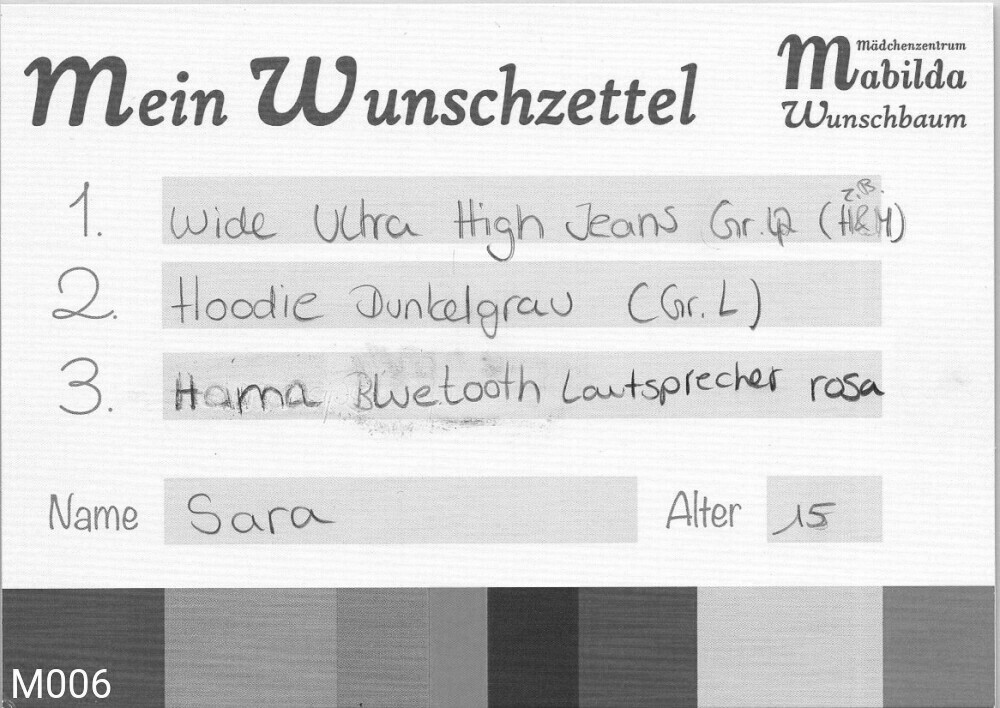 Mein Wunschzettel
Mädchenzentrum
Mabilda
Wunschbaum
1. Wide Ultra High Jeans Gr. 42 (z.B. H&M)
2. Hoodie Dunkelgrau (Gr. L)
3. Hama Bluetooth Lautsprecher rosa
Name Sara Alter 15
M006